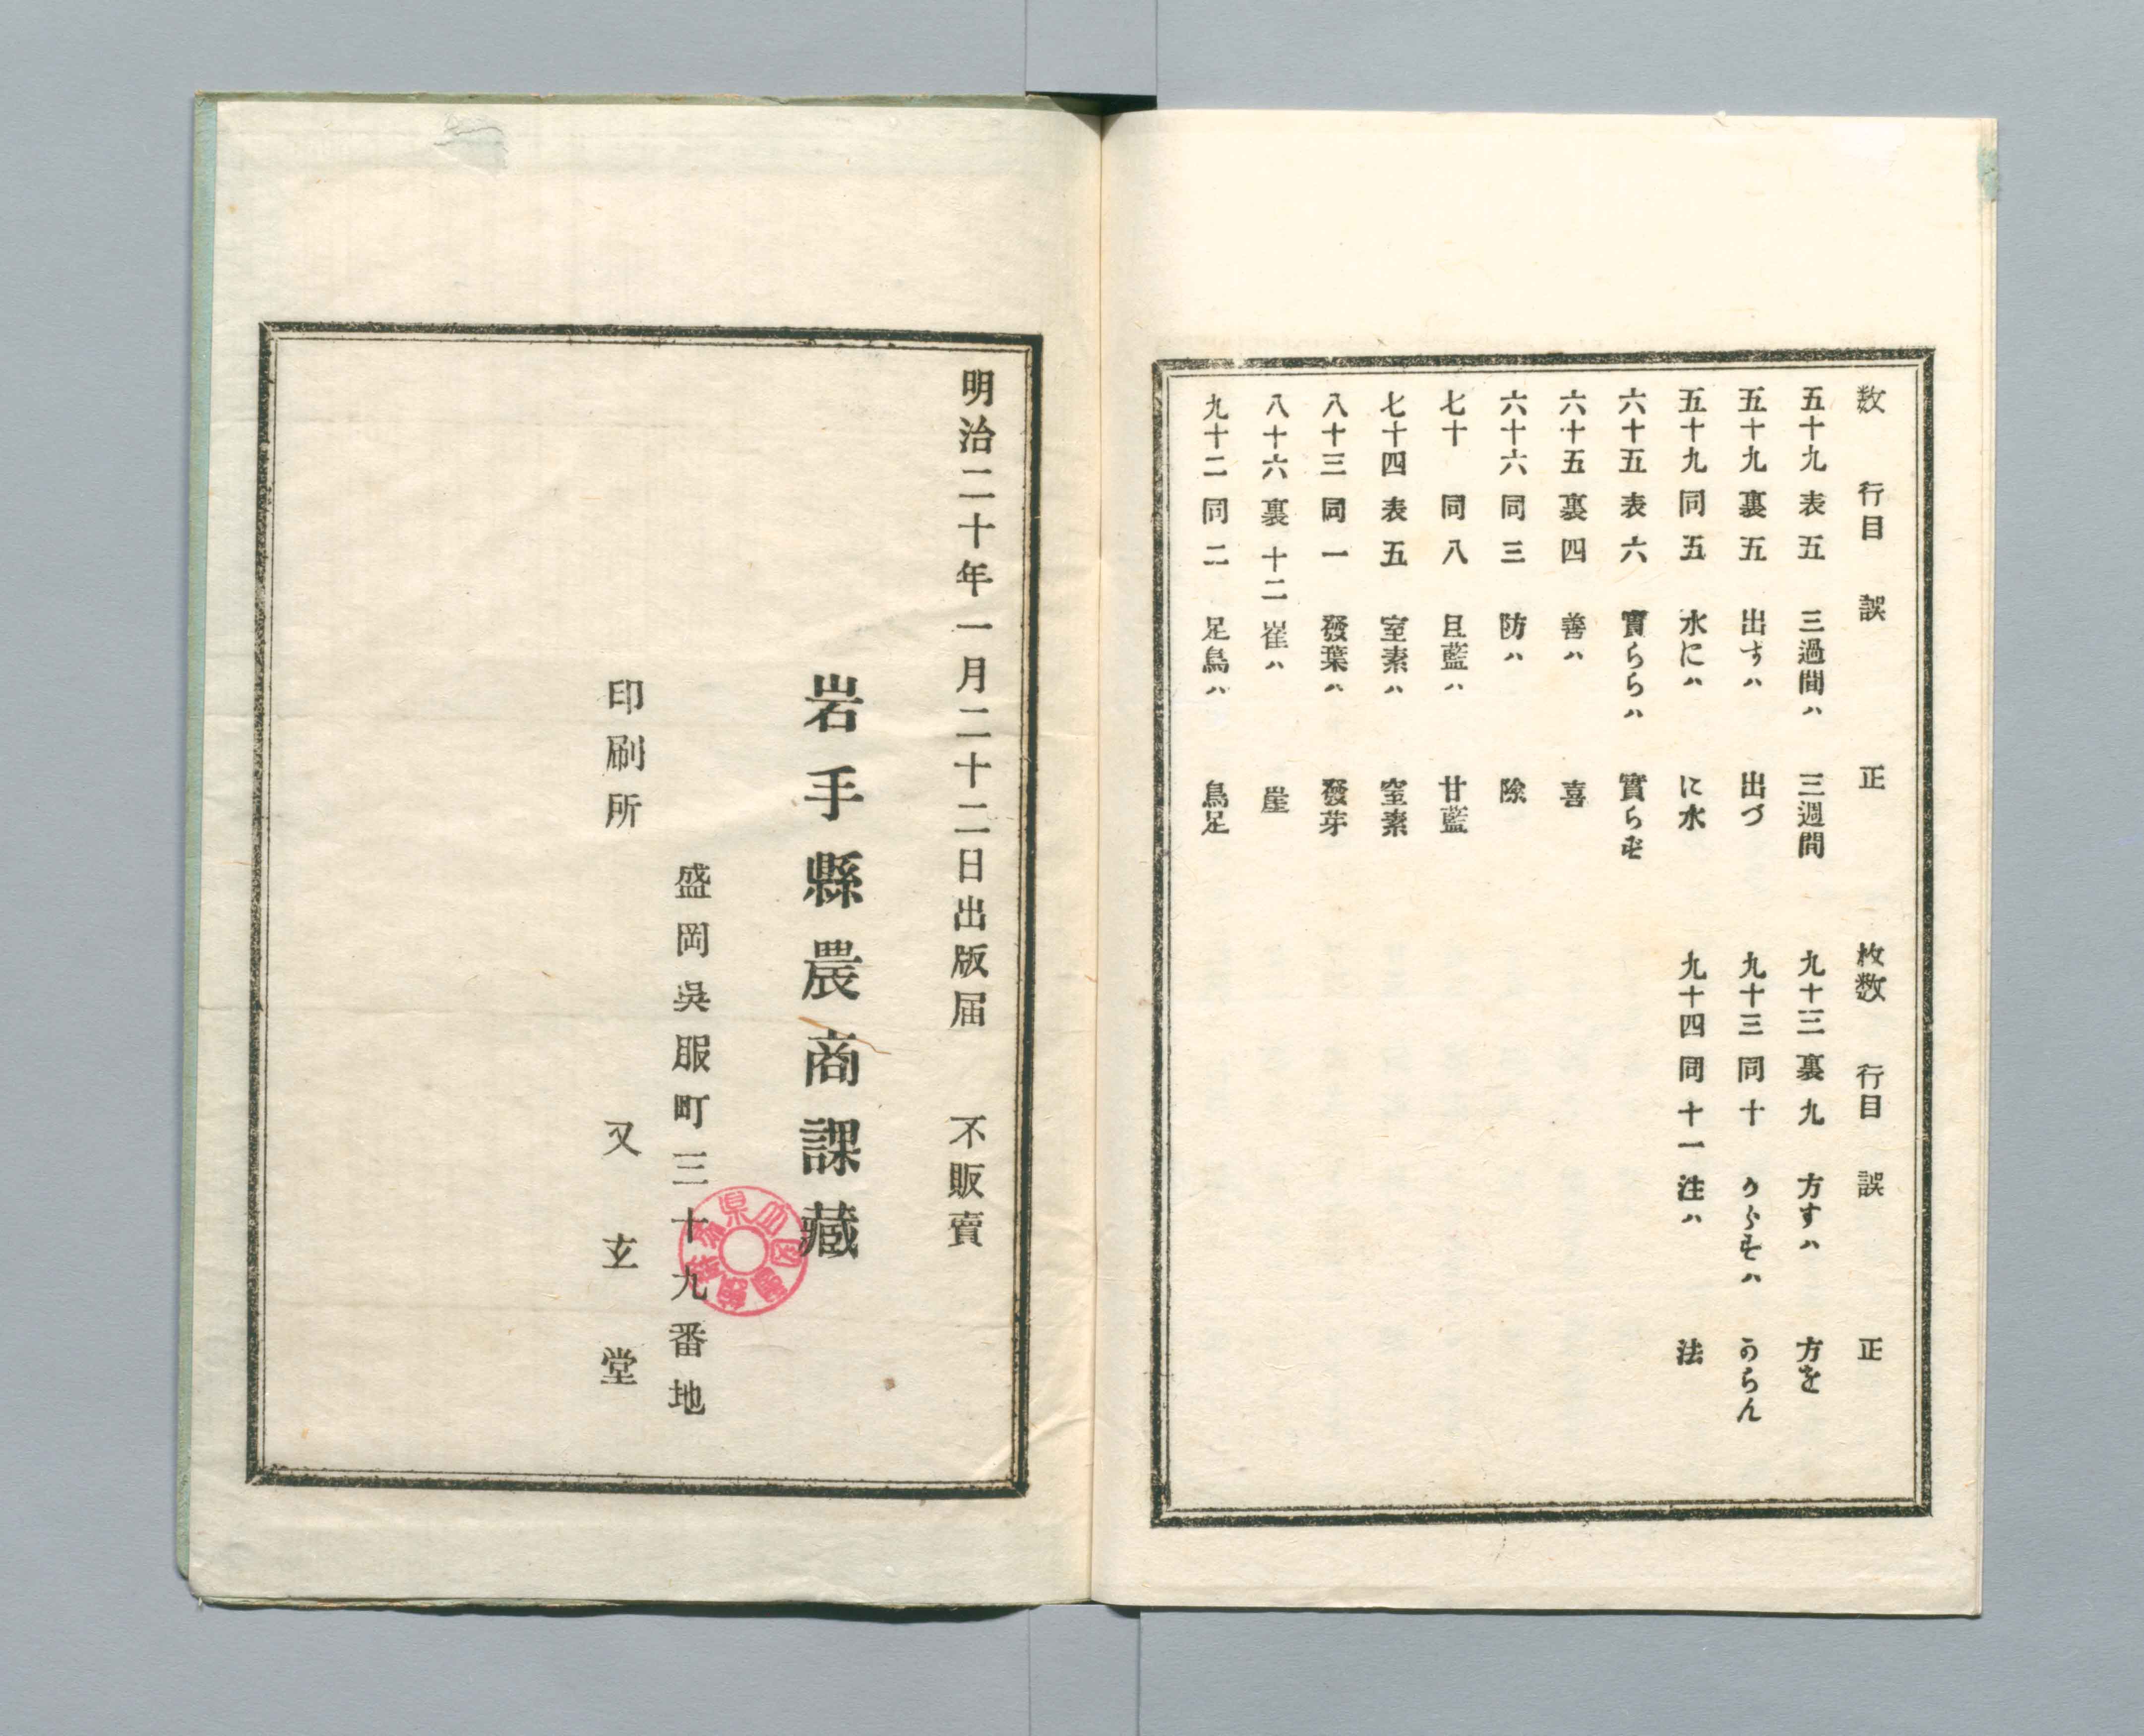 数 行目 誤 正
五十九 表 五 三過間ハ 三週間
五十九 裏 五 出すハ 出づ
五十九 同 五 水にハ に水
六十五 表 六 實ららハ 實らず
六十五 裏 四 善ハ 喜
六十六 同 三 防ハ 除
七十 同 八 且藍ハ 甘藍
七十四 表 五 室素ハ 窒素
八十三 同 一 發葉ハ 發芽
八十六 裏 十二 崔ハ 崖
九十二 同 二 足鳥ハ 鳥足
枚数 行目 誤 正
九十三 裏 九 方すハ 方を
九十三 同 十
九十四 同 十一 注ハ 法
明治二十年一月二十二日出版届 不販賣
岩手縣農商課藏
盛岡吳服町三十九番地
印刷所 又玄堂